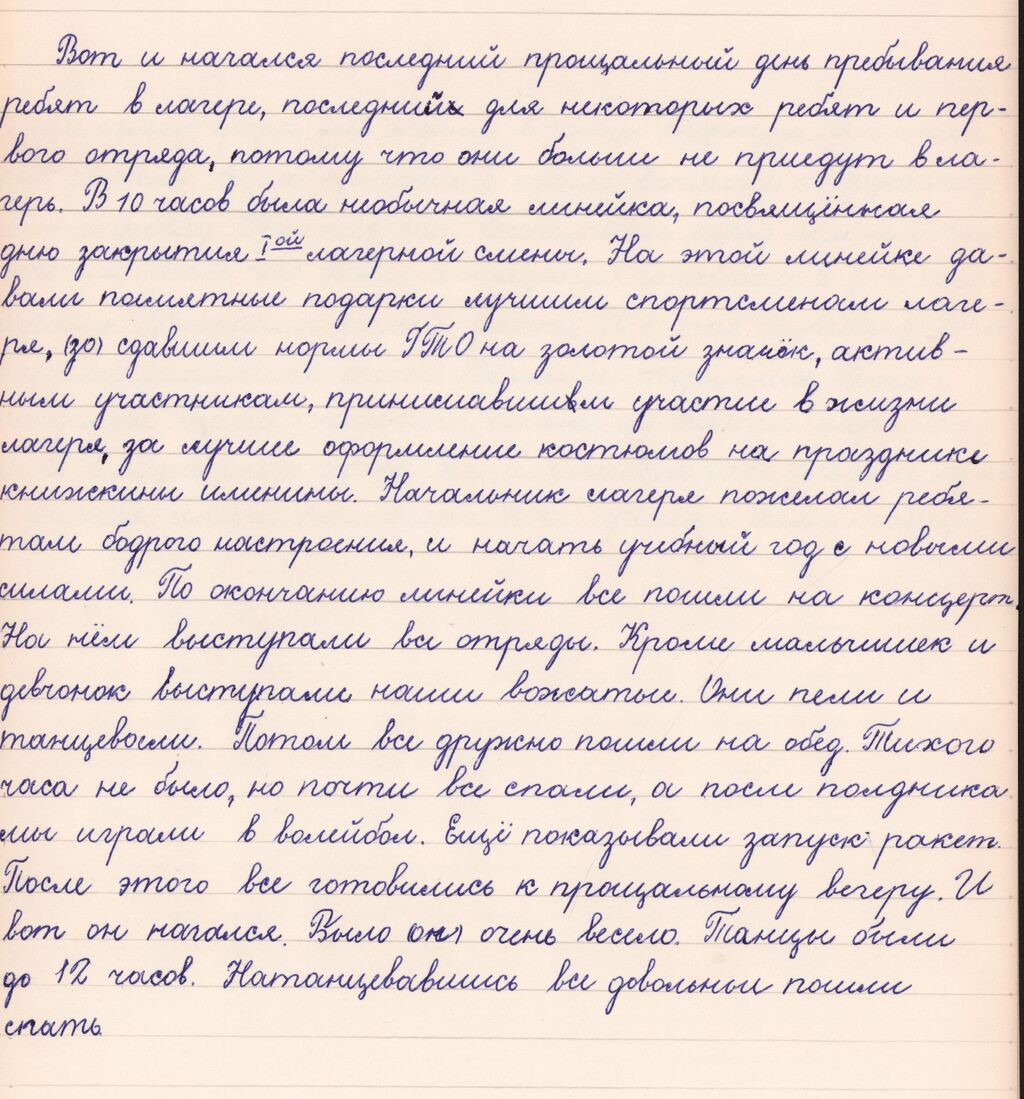 Вот и начался последний прощальный день пребывания
ребят в лагере, последний для некоторых ребят и пер-
вого отряда, потому что они больше не приедут в ла-
герь. В 10 часов была необычная линейка, посвящённая
дню закрытия I ой лагерной смены. На этой линейке да-
вали памятные подарки лучшим спортсменам лаге-
ря, (за) сдавшим нормы ГТО на золотой значёк, актив-
ным участникам, принимавшим участие в жизни
лагеря, за лучшее оформление костюмов на празднике
книжкины именины. Начальник лагеря пожелал ребя-
там бодрого настроения, и начать учебный год с новыми
силами. По окончанию линейки все пошли на концерт.
На нём выступали все отряды. Кроме мальчишек и
девчонок выступали наши вожатые. Они пели и
танцевали. Потом все дружно пошли на обед. Тихого
часа не было, но почти все спали, а после полдника
мы играли в волейбол. Ещё показывали запуск ракет.
После этого все готовились к прощальному вечеру. И
вот он начался. Было (он) очень весело. Танцы были
до 12 часов. Натанцевавшись все довольные пошли
спать.